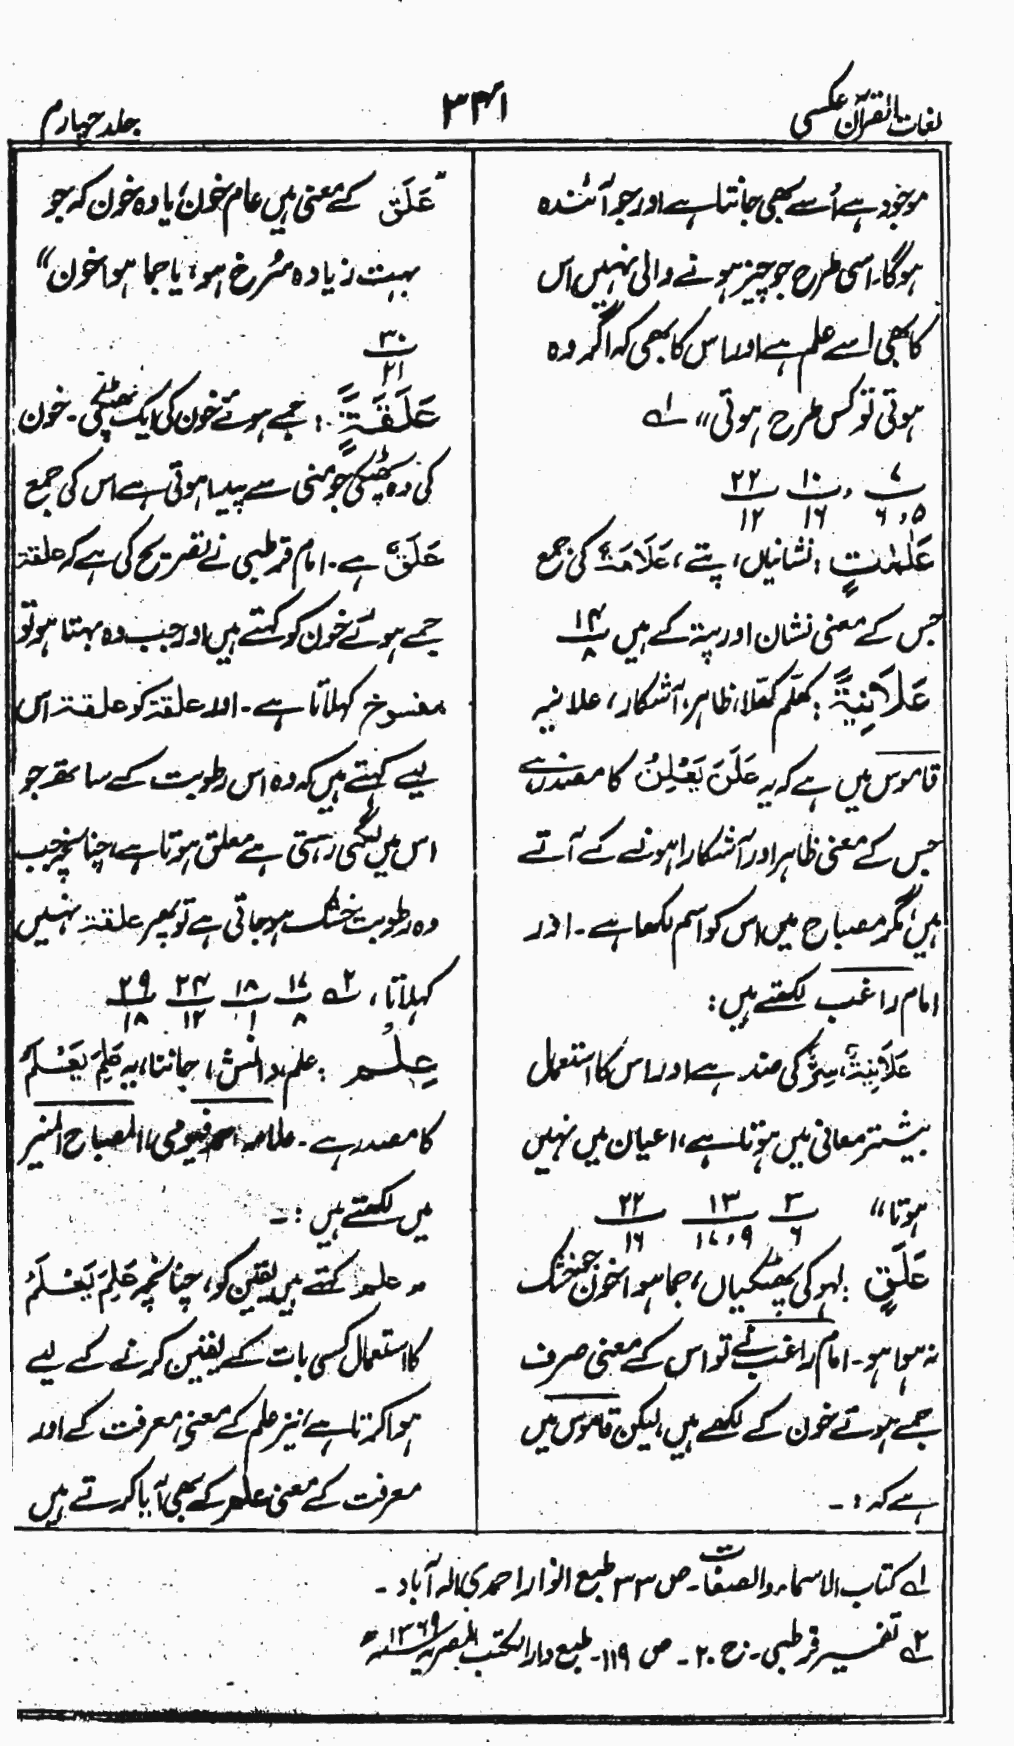 لغات القرآن عکسی
۳۴۱
جلد چہارم
موجود ہے اُسے بھی جانتا ہے اور جو آئندہ
ہوگا۔ اسی طرح جو چیز ہونے والی نہیں اس
کا بھی اسے علم ہے اور اس کا بھی کہ اگر وہ
ہوتی تو کس طرح ہوتی" ۱ے
۷ ، ۱۰ ۲۲
۵، ۶ ۱۶ ۱۲
عَلٰمٰتٍ : نشانیاں، پتے، عَلَامَۃٌ کی جمع
جس کے معنی نشان اور پتہ کے ہیں ۱۴
۸
عَلَانِیَۃً : کھلّم کھلّا، ظاہر، آشکار، علانیہ
قاموس میں ہے کہ یہ عَلَنَ یَعْلِنُ کا مصدر ہے
جس کے معنی ظاہر اور آشکارا ہونے کے آتے
ہیں، مگر مصباح میں اس کو اسم لکھا ہے۔ اور
امام راغب لکھتے ہیں:
عَلَانِیَۃٌ، سِرٌّ کی ضد ہے اور اس کا استعمال
بیشتر معانی میں ہوتا ہے، اعیان میں نہیں
ہوتا" ۳ ۱۳ ۲۲
۶ ۹، ۱۷ ۱۶
عَلَقٍ : لہو کی پھٹکیاں، جما ہوا خون جو خشک
نہ ہوا ہو۔ امام راغب نے تو اس کے معنی صرف
جمے ہوئے خون کے لکھے ہیں، لیکن قاموس میں
ہے کہ :۔
"عَلَق کے معنی ہیں عام خون؛ یا وہ خون کہ جو
بہت زیادہ سُرخ ہو؛ یا جما ہوا خون"
۳۰
۲۱
عَلَقَۃٍ : جمے ہوئے خون کی ایک پھٹکی۔ خون
کی وہ پھٹکی جو منی سے پیدا ہوتی ہے اس کی جمع
عَلَقٌ ہے۔ امام قرطبی نے تصریح کی ہے کہ علقۃ
جمے ہوئے خون کو کہتے ہیں اور جب وہ بہتا ہو تو
مفسوخ کہلاتا ہے۔ اور علقۃ کو علقۃ اس
لیے کہتے ہیں کہ وہ اس رطوبت کے ساتھ جو
اس میں لگی رہتی ہے معلق ہوتا ہے، چنانچہ جب
وہ رطوبت خشک ہوجاتی ہے تو پھر علقۃ نہیں
کہلاتا، ۲ے ۱۷ ۱۸ ۲۴ ۲۹
۸ ۱ ۱۲ ۱۸
عِلْمٌ : علم، دانش، جاننا، یہ عَلِمَ یَعْلَمُ
کا مصدر ہے۔ علامہ احمد فیومی، المصباح المنیر
میں لکھتے ہیں :۔
"علم کہتے ہیں یقین کو، چنانچہ عَلِمَ یَعْلَمُ
کا استعمال کسی بات کے یقین کرنے کے لیے
ہوا کرتا ہے، نیز علم کے معنی معرفت کے اور
معرفت کے معنی علم کے بھی آیا کرتے ہیں
۱ے کتاب الاسماء والصفات۔ ص ۳۳ طبع انوار احمدی الہ آباد۔
۲ے تفسیر قرطبی۔ ج ۲۰۔ ص ۱۱۹۔ طبع دارالکتب المصریہ سنہ ۱۳۶۹ھ